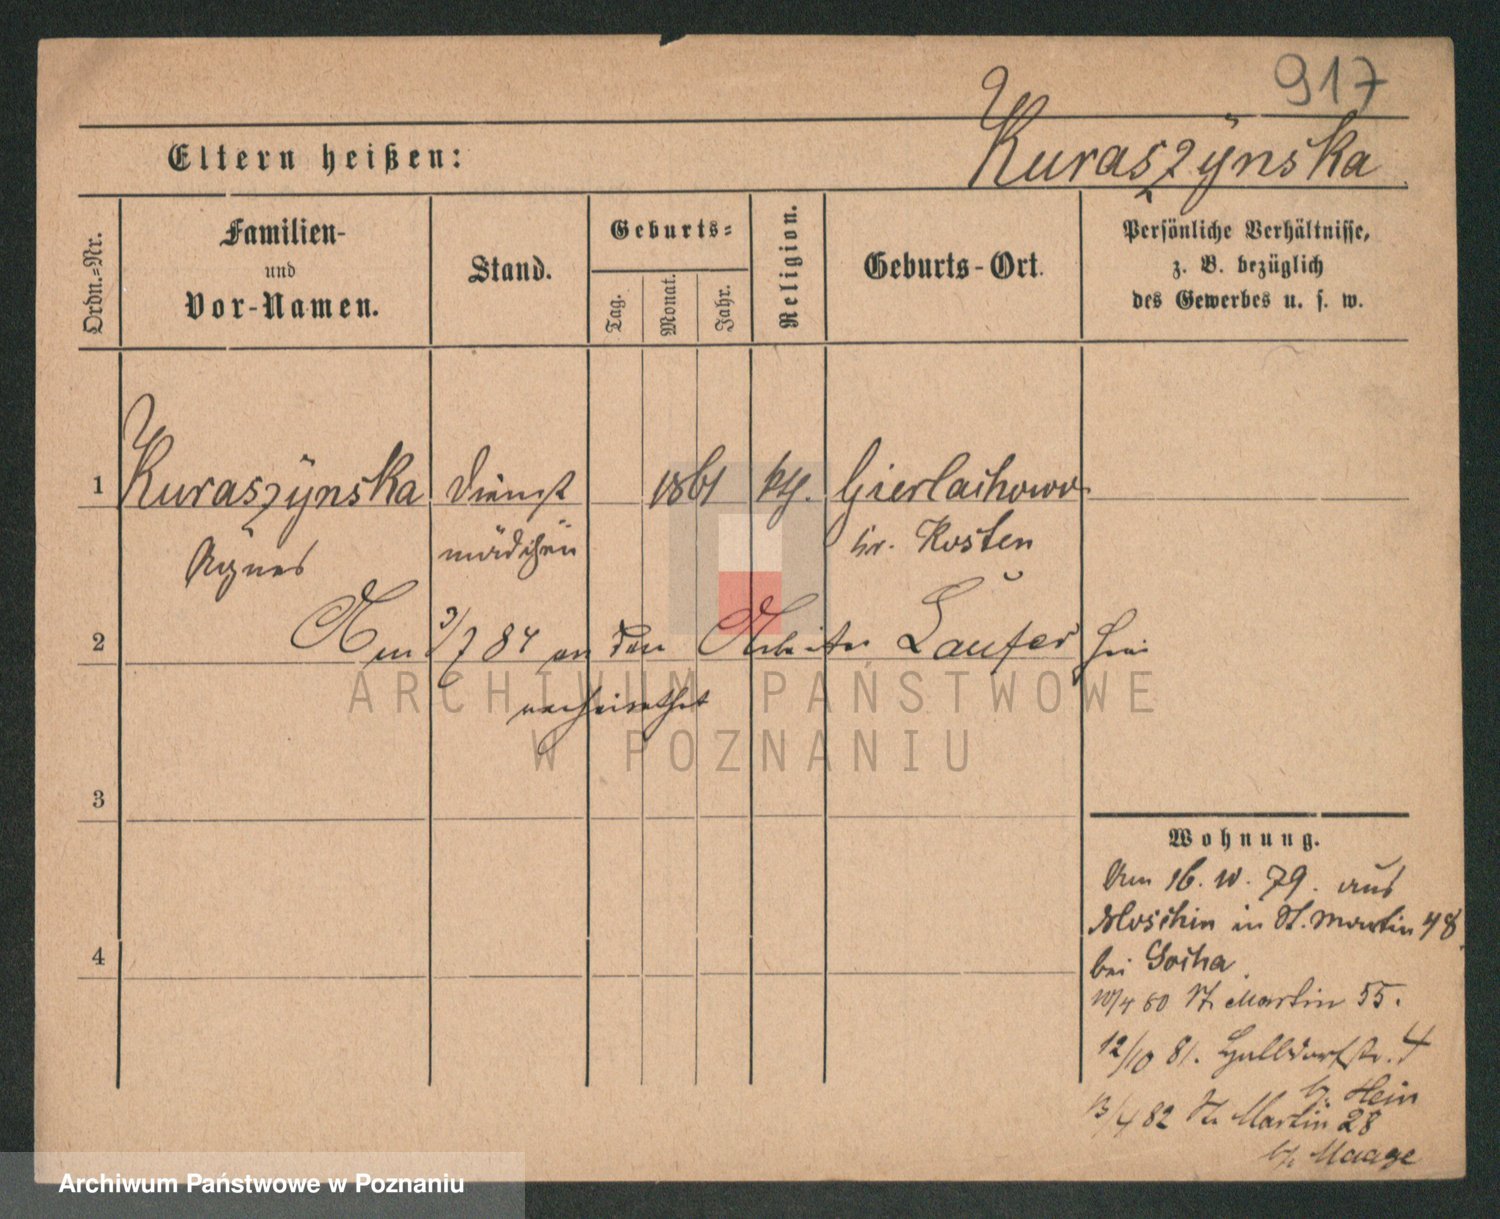 917
Kuraszÿnska
Eltern heißen:
Ordn.-Nr.
Familien-
und
Vor-Namen.
Stand.
Geburts-
Tag.
Monat.
Jahr.
Religion.
Geburts-Ort.
Persönliche Verhältnisse,
z. B. bezüglich
des Gewerbes u. s. w.
1 Kuraszÿnska Dienst 1861 kth. Gierlachowo
Agnes mädchen kr. Kosten
2 Am 3/7 84 an den Arbeiter Laufer hier
verheirathet
3
4
Wohnung.
Am 16. 10. 79. aus
Moschin in St. Martin 48.
bei Gocha.
10/4 80 St. Martin 55.
12/10 81. Halbdorfstr. 4
b. Hein
13/4 82 St. Martin 28
b. Maage
ARCHIWUM PAŃSTWOWE
W POZNANIU
Archiwum Państwowe w Poznaniu